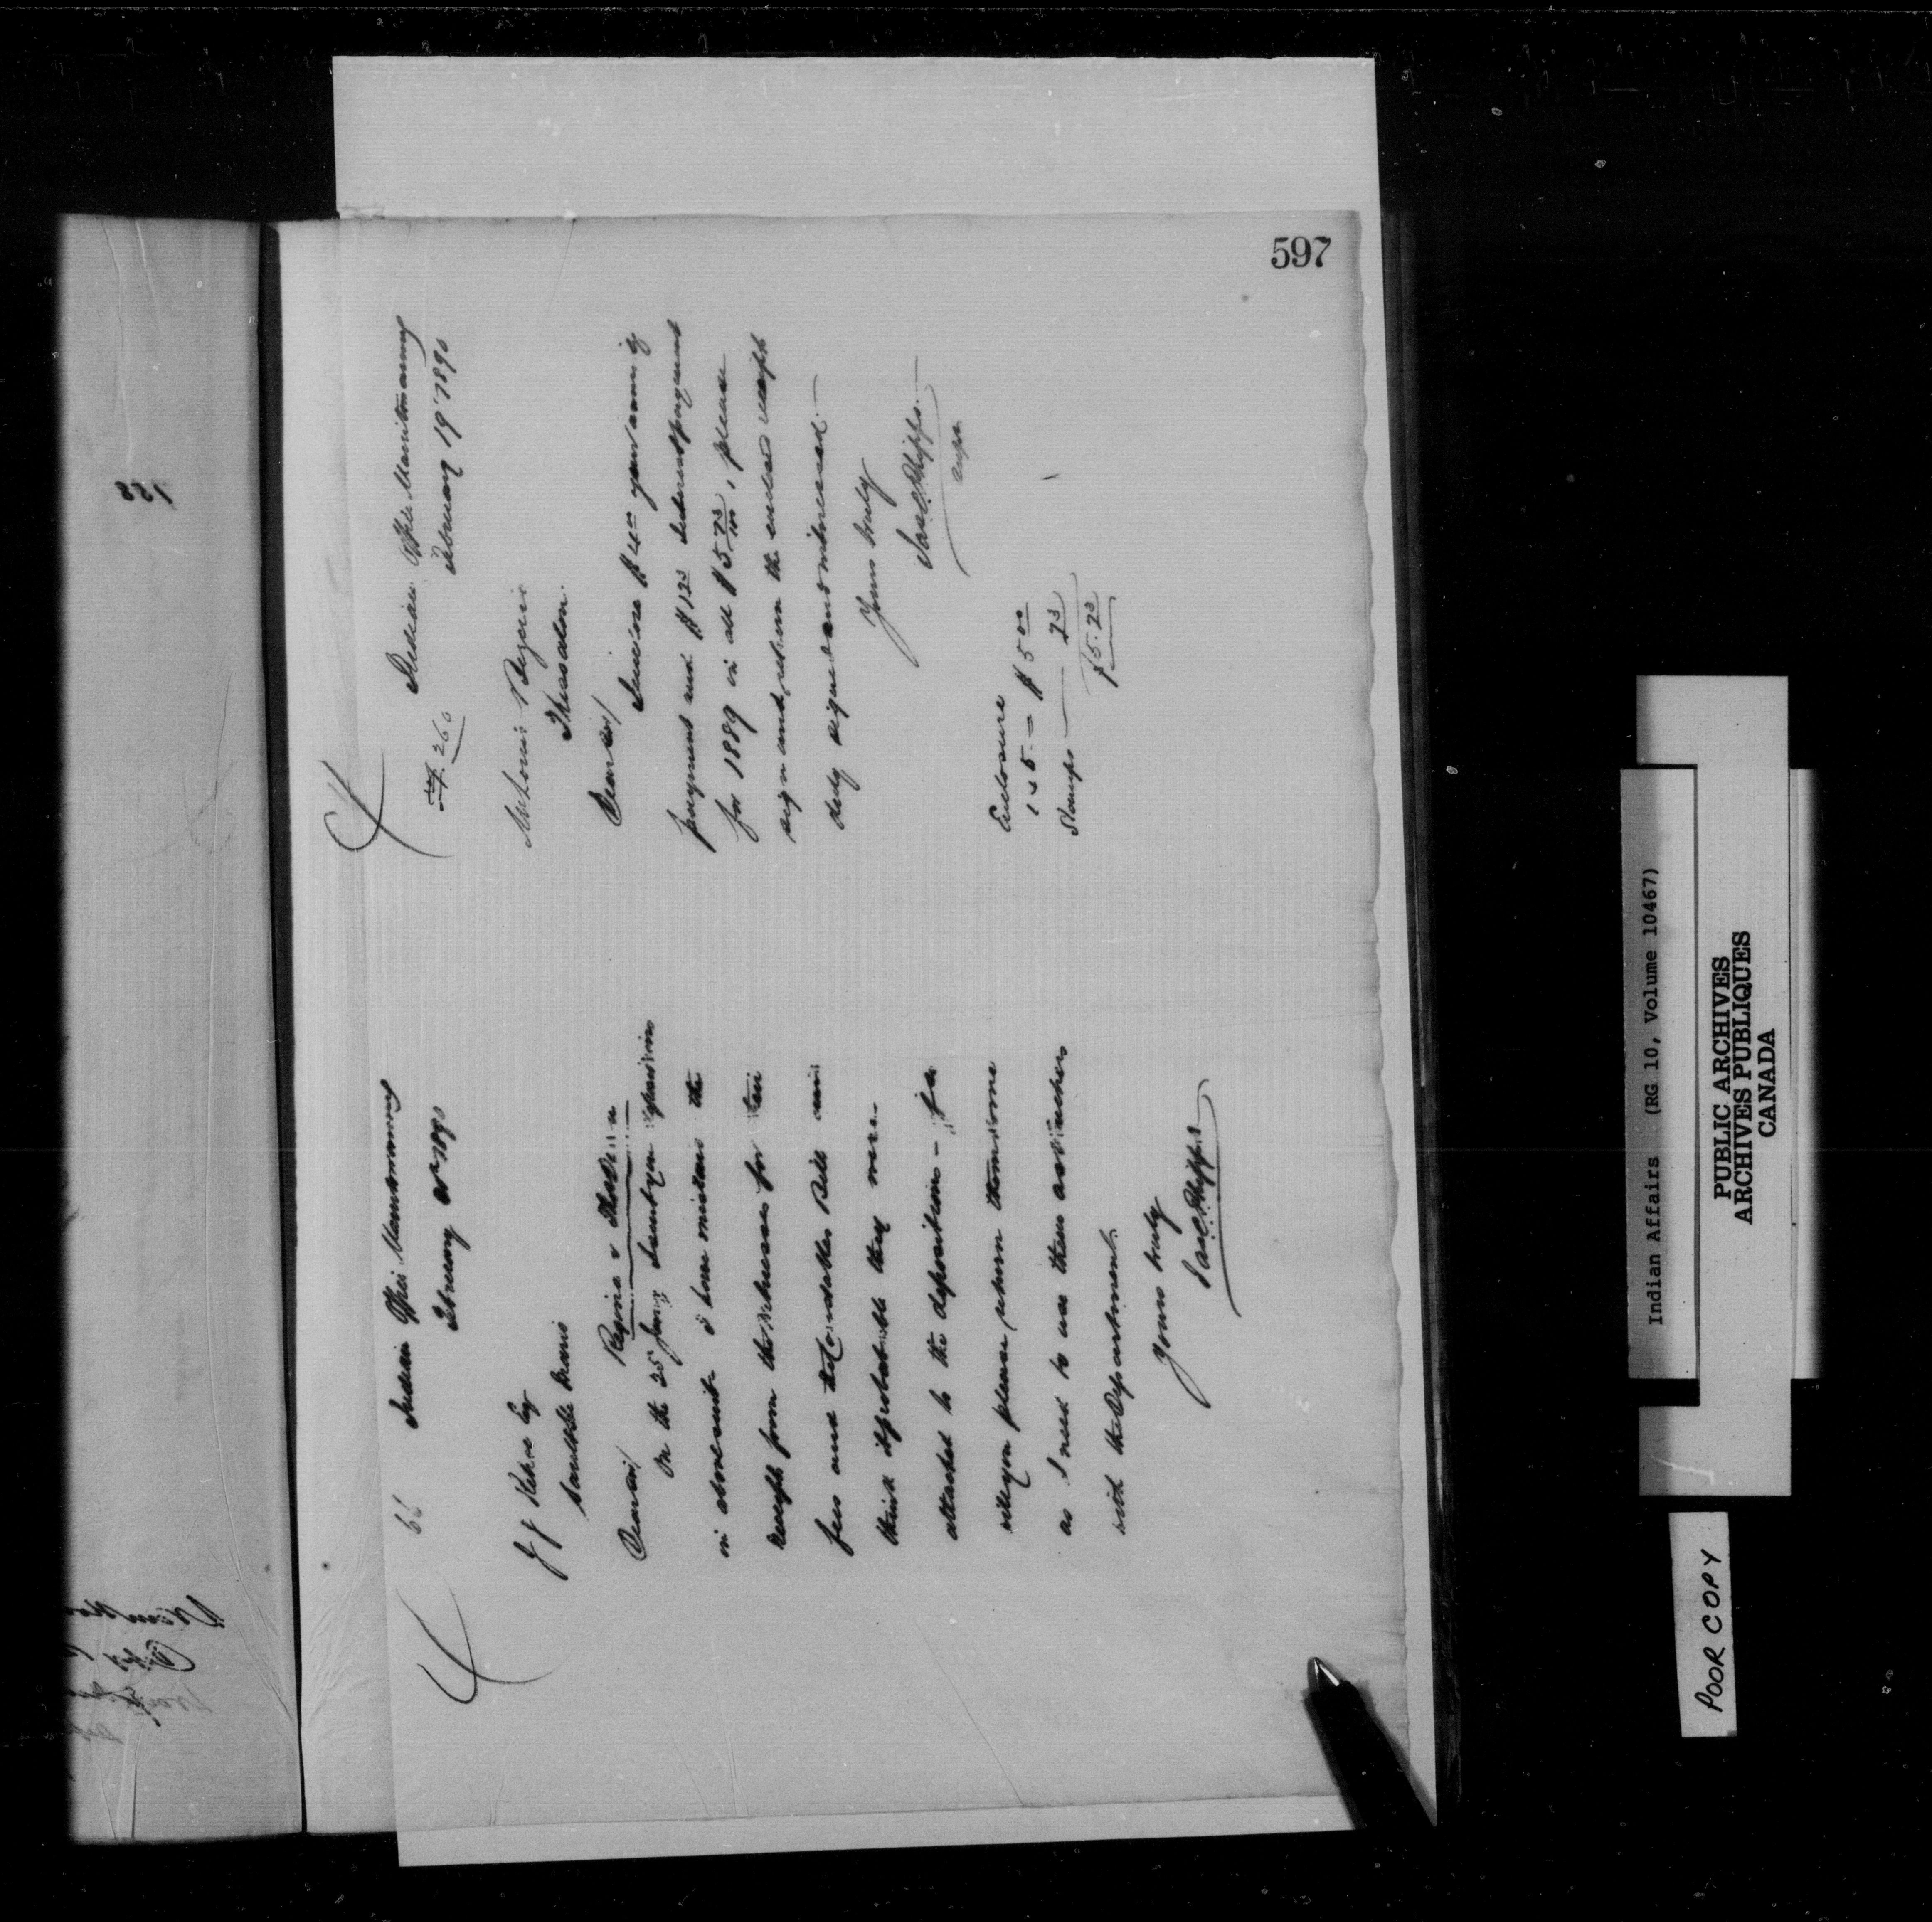 597
66
Indian Office Manitowaning
February 1890
J J Kehoe Esq
Sault Ste Marie
Dear Sir/ Regina v
On the 25 Jany I sent you depositions
in above suit I have mislaid the
receipts from the witnesses for their
fees and the Constables Bill and
think it probable they were
attached to the depositions - if so
will you please return them to me
as I need to use them as vouchers
with the Department.
Yours truly
Jas C Phipps
260
Indian Office Manitowaning
February 19 1890
Mr Louis
Thessalon
Dear Sir/
I enclose $4.00 your annuity
payment and $1.23 Interest payment
for 1889 in all $5 23/100, please
sign and return the enclosed receipt
duly signed and witnessed.
Yours truly
Jas C Phipps
Supt
Enclosure
1 x 5 - $5 00
Stamps 23
$5.23
Indian Affairs (RG 10, Volume 10467)
PUBLIC ARCHIVES
ARCHIVES PUBLIQUES
CANADA
POOR COPY